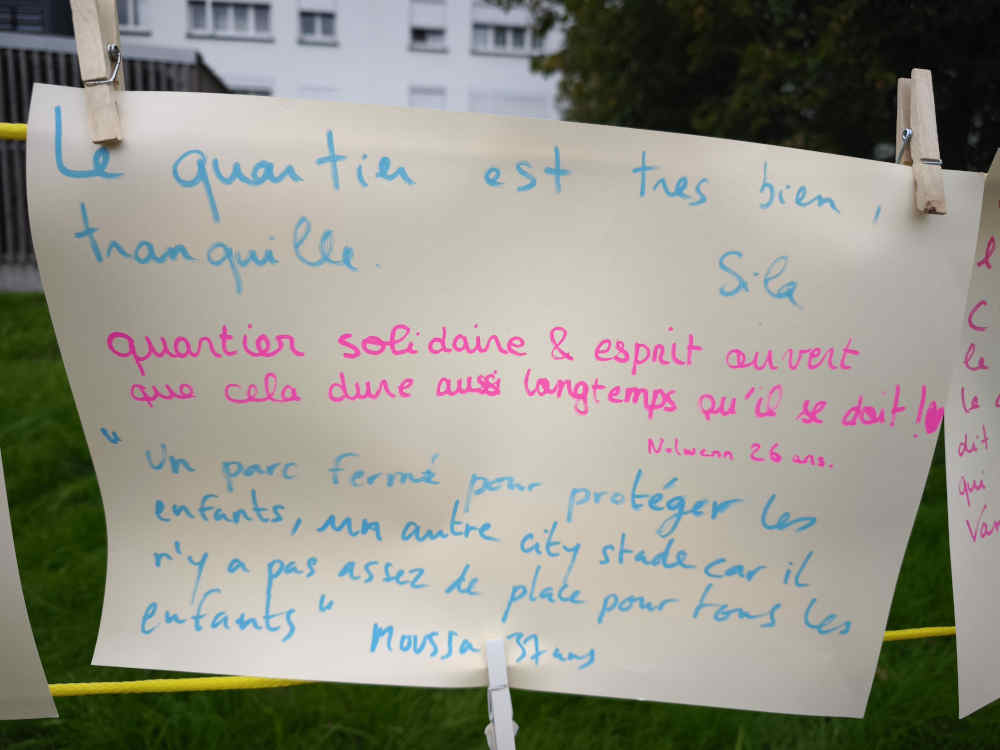 Le quartier est tres bien,
tranquille.
Sila
quartier solidaire & esprit ouvert
que cela dure aussi longtemps qu'il se doit !
Nolwenn 26 ans.
"Un parc fermé pour protéger les
enfants, un autre city stade car il
n'y a pas assez de place pour tous les
enfants"
Moussa 37 ans
l
C
le
le
dit
qui